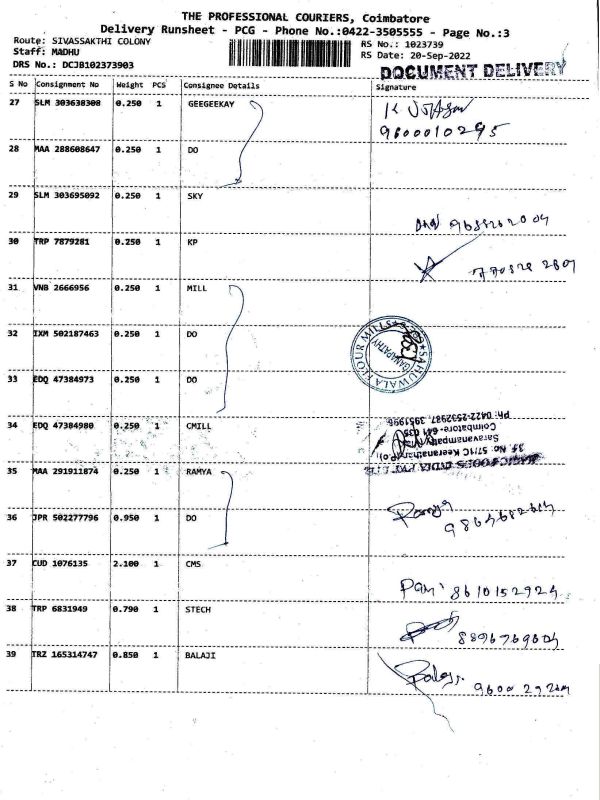 THE PROFESSIONAL COURIERS, Coimbatore
Delivery Runsheet - PCG - Phone No.:0422-3505555 - Page No.:3
Route: SIVASSAKTHI COLONY
Staff: MADHU
DRS No.: DCJB102373903
RS No.: 1023739
RS Date: 20-Sep-2022
DOCUMENT DELIVERY
S No Consignment No Weight PCS Consignee Details Signature
27 SLM 303638308 0.250 1 GEEGEEKAY
9600010295
28 MAA 288608647 0.250 1 DO
29 SLM 303695092 0.250 1 SKY
30 TRP 7879281 0.250 1 KP
31 VNB 2666956 0.250 1 MILL
32 IXM 502187463 0.250 1 DO
SAHUWALA FLOUR MILLS
GANAPATHY
33 EDQ 47384973 0.250 1 DO
34 EDQ 47384980 0.250 1 CMILL
Saravanampatty
Coimbatore-641 035
PH: 0422-2532987, 3951996
35 MAA 291911874 0.250 1 RAMYA
36 JPR 502277796 0.950 1 DO
37 CUD 1076135 2.100 1 CMS
8610152924
38 TRP 6831949 0.790 1 STECH
39 TRZ 165314747 0.850 1 BALAJI